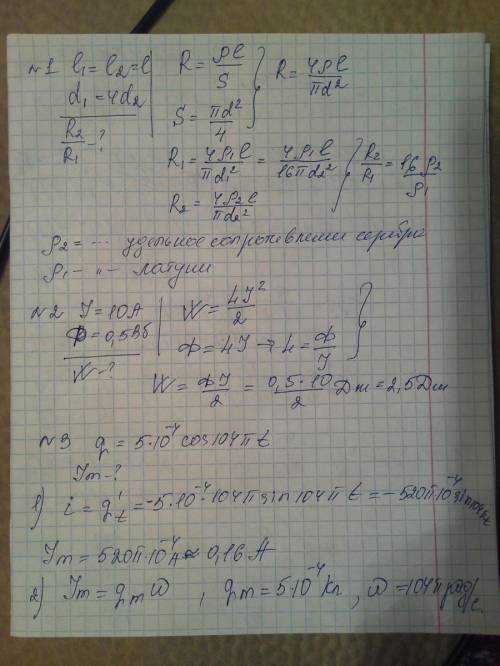 №1 l₁ = l₂ = l
d₁ = 4d₂
R₂/R₁ - ?
R = ρl/S
S = πd²/4
R = 4ρl/πd²
R₁ = 4ρ₁l/πd₁² = 4ρ₁l/16πd₂²
R₂ = 4ρ₂l/πd₂²
R₂/R₁ = 16ρ₂/ρ₁
ρ₂ = ... удельное сопротивление серебра
ρ₁ - " - латуни
№2 J = 10A
Ф = 0,5Вб
W - ?
W = LJ²/2
Ф = LJ → L = Ф/J
W = ФJ/2 = 0,5·10/2 Дж = 2,5Дж
№3 q = 5·10⁻⁴ cos104πt
Jm - ?
1) i = q't = -5·10⁻⁴·104π sin104πt = -520π·10⁻⁴ sin104πt
Jm = 520π·10⁻⁴A ≈ 0,16A
2) Jm = qmω , qm = 5·10⁻⁴Кл , ω = 104π рад/с